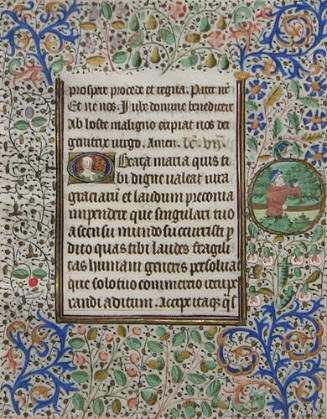 prospere procede et regna. Pater nr̄
Et ne nos. Jube domine benedicere
Ab hoste maligno eripiat nos dei
genitrix virgo. Amen. lc̄
Beata maria quis ti
bi digne valeat iura
graciarū et laudum preconia
impendere que singulari tuo
assensu mundo succurristi p
dito quas tibi laudes fragili
tas humani generis persoluat
que solo tuo commercio recupe
randi aditum. Accipe itaqꝫ qͣs